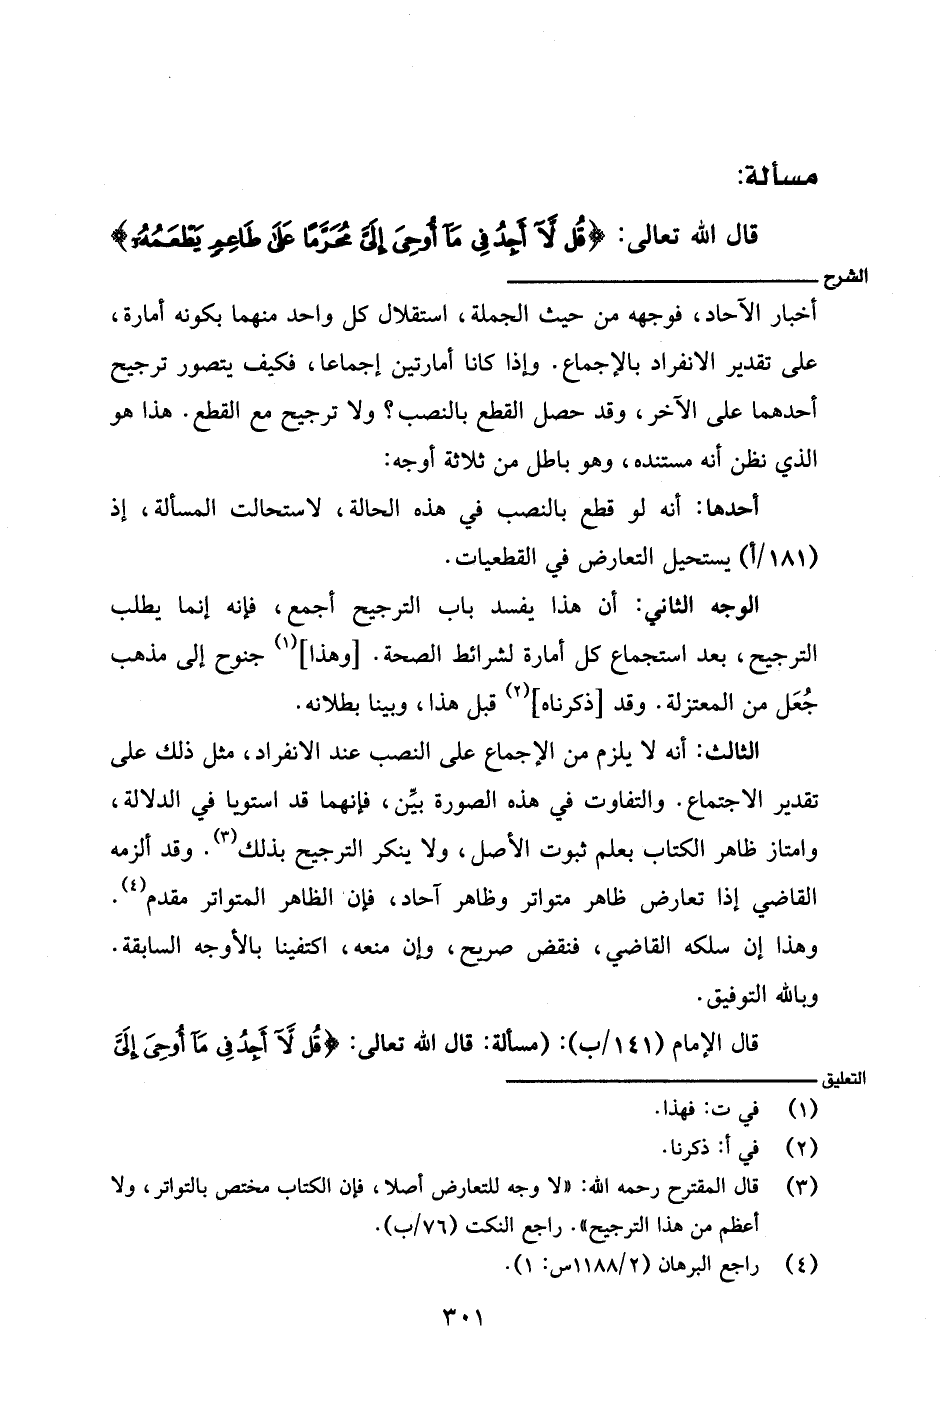 مسألة:
قال الله تعالى: ﴿قُل لَّآ أَجِدُ فِي مَآ أُوحِيَ إِلَيَّ مُحَرَّمًا عَلَىٰ طَاعِمٍ يَطْعَمُهُۥٓ﴾
الشرح
أخبار الآحاد، فوجهه من حيث الجملة، استقلال كل واحد منهما بكونه أمارة،
على تقدير الانفراد بالإجماع. وإذا كانا أمارتين إجماعا، فكيف يتصور ترجيح
أحدهما على الآخر، وقد حصل القطع بالنصب؟ ولا ترجيح مع القطع. هذا هو
الذي نظن أنه مستنده، وهو باطل من ثلاثة أوجه:
أحدها: أنه لو قطع بالنصب في هذه الحالة، لاستحالت المسألة، إذ
(١٨١/أ) يستحيل التعارض في القطعيات.
الوجه الثاني: أن هذا يفسد باب الترجيح أجمع، فإنه إنما يطلب
الترجيح، بعد استجماع كل أمارة لشرائط الصحة. [وهذا](١) جنوح إلى مذهب
جُعَل من المعتزلة. وقد [ذكرناه](٢) قبل هذا، وبينا بطلانه.
الثالث: أنه لا يلزم من الإجماع على النصب عند الانفراد، مثل ذلك على
تقدير الاجتماع. والتفاوت في هذه الصورة بيِّن، فإنهما قد استويا في الدلالة،
وامتاز ظاهر الكتاب بعلم ثبوت الأصل، ولا ينكر الترجيح بذلك(٣). وقد ألزمه
القاضي إذا تعارض ظاهر متواتر وظاهر آحاد، فإن الظاهر المتواتر مقدم(٤).
وهذا إن سلكه القاضي، فنقض صريح، وإن منعه، اكتفينا بالأوجه السابقة.
وبالله التوفيق.
قال الإمام (١٤١/ب): (مسألة: قال الله تعالى: ﴿قُل لَّآ أَجِدُ فِي مَآ أُوحِيَ إِلَيَّ
التعليق
(١) في ت: فهذا.
(٢) في أ: ذكرنا.
(٣) قال المقترح رحمه الله: «لا وجه للتعارض أصلا، فإن الكتاب مختص بالتواتر، ولا
أعظم من هذا الترجيح». راجع النكت (٧٦/ب).
(٤) راجع البرهان (١١٨٨/٢س: ١).
٣٠١